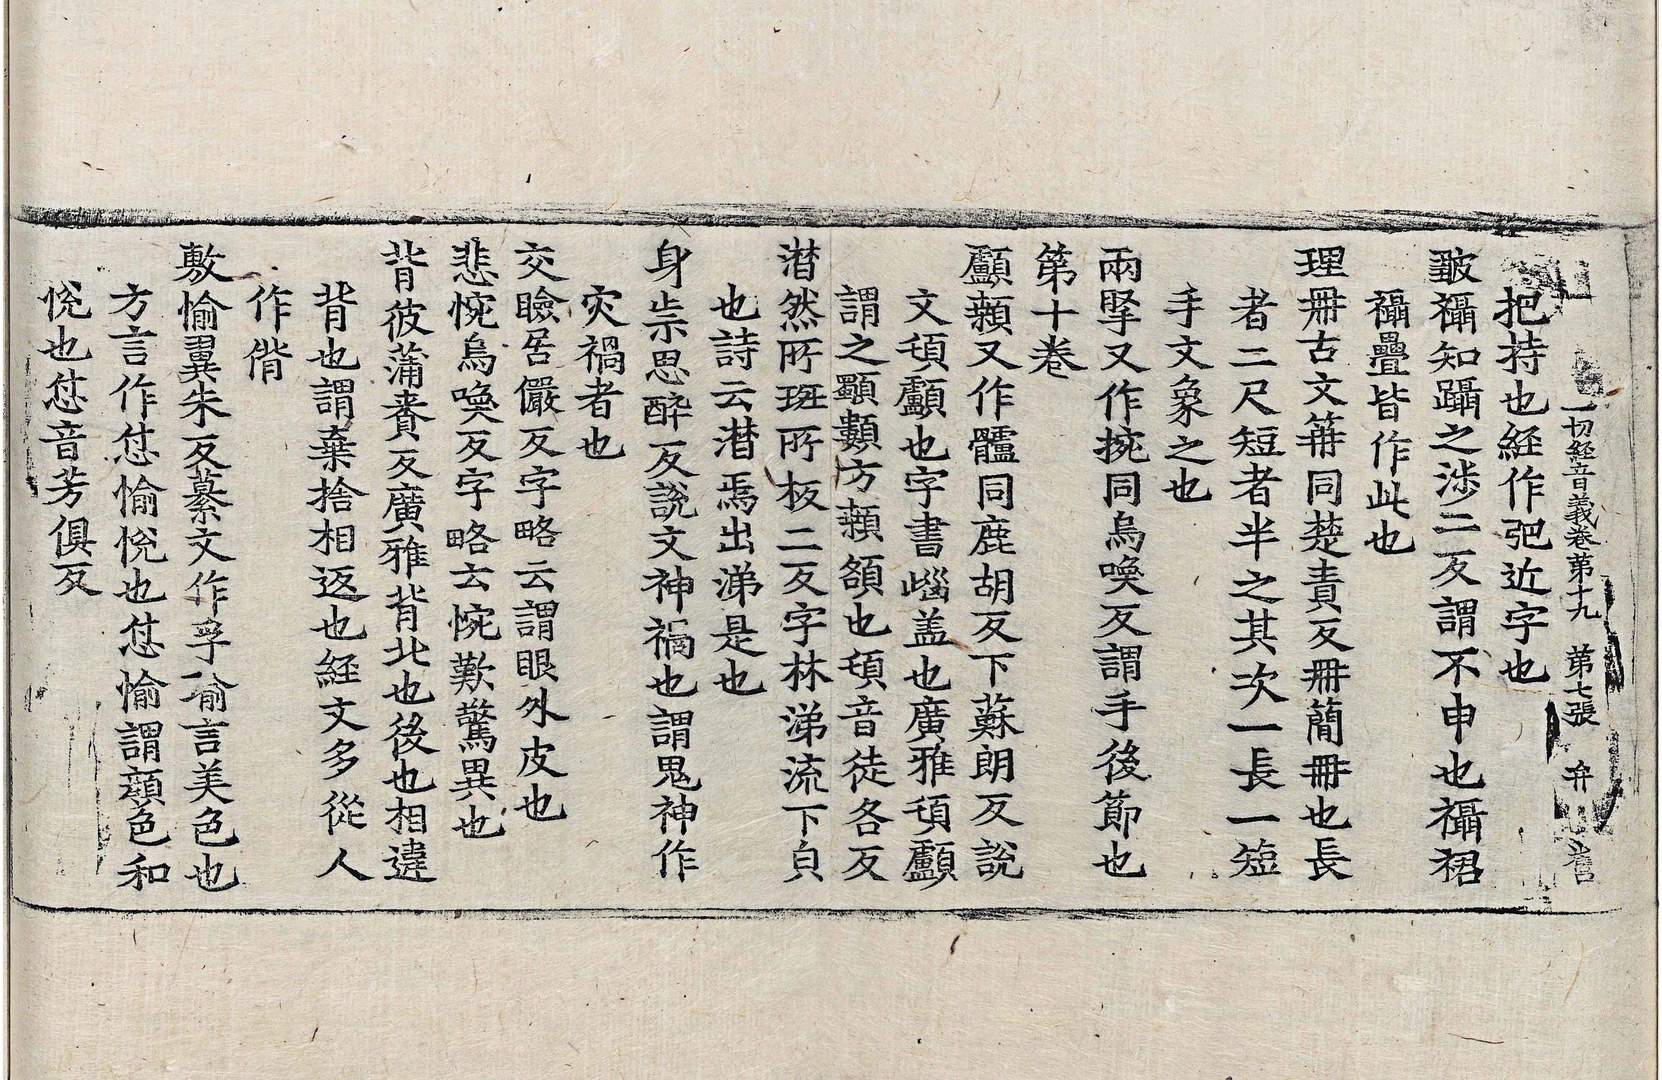 一切経音義巻第十九　第七張　弁
把持也経作弝近字也
皺襵知躡之涉二反謂不申也襵裙
襵疊皆作此也
理冊古文笧同楚責反冊簡冊也長
者二尺短者半之其次一長一短
手文象之也
兩掔又作捥同烏喚反謂手後節也
第十巻
顱顙又作髗同鹿胡反下蘇朗反說
文頊顱也字書𡿺盖也廣雅頊顱
謂之顖顙方顙頟也頊音徒各反
潸然所班所板二反字林涕流下皃
也詩云潸焉出涕是也
身祟思醉反說文神禍也謂鬼神作
灾禍者也
交瞼居儼反字略云謂眼外皮也
悲惋烏喚反字略云惋歎驚異也
背彼蒲賚反廣雅背北也後也相違
背也謂棄捨相返也経文多從人
作偝
敷愉翼朱反纂文作孚瑜言美色也
方言作怤愉悅也怤愉謂顔色和
悅也怤音芳俱反